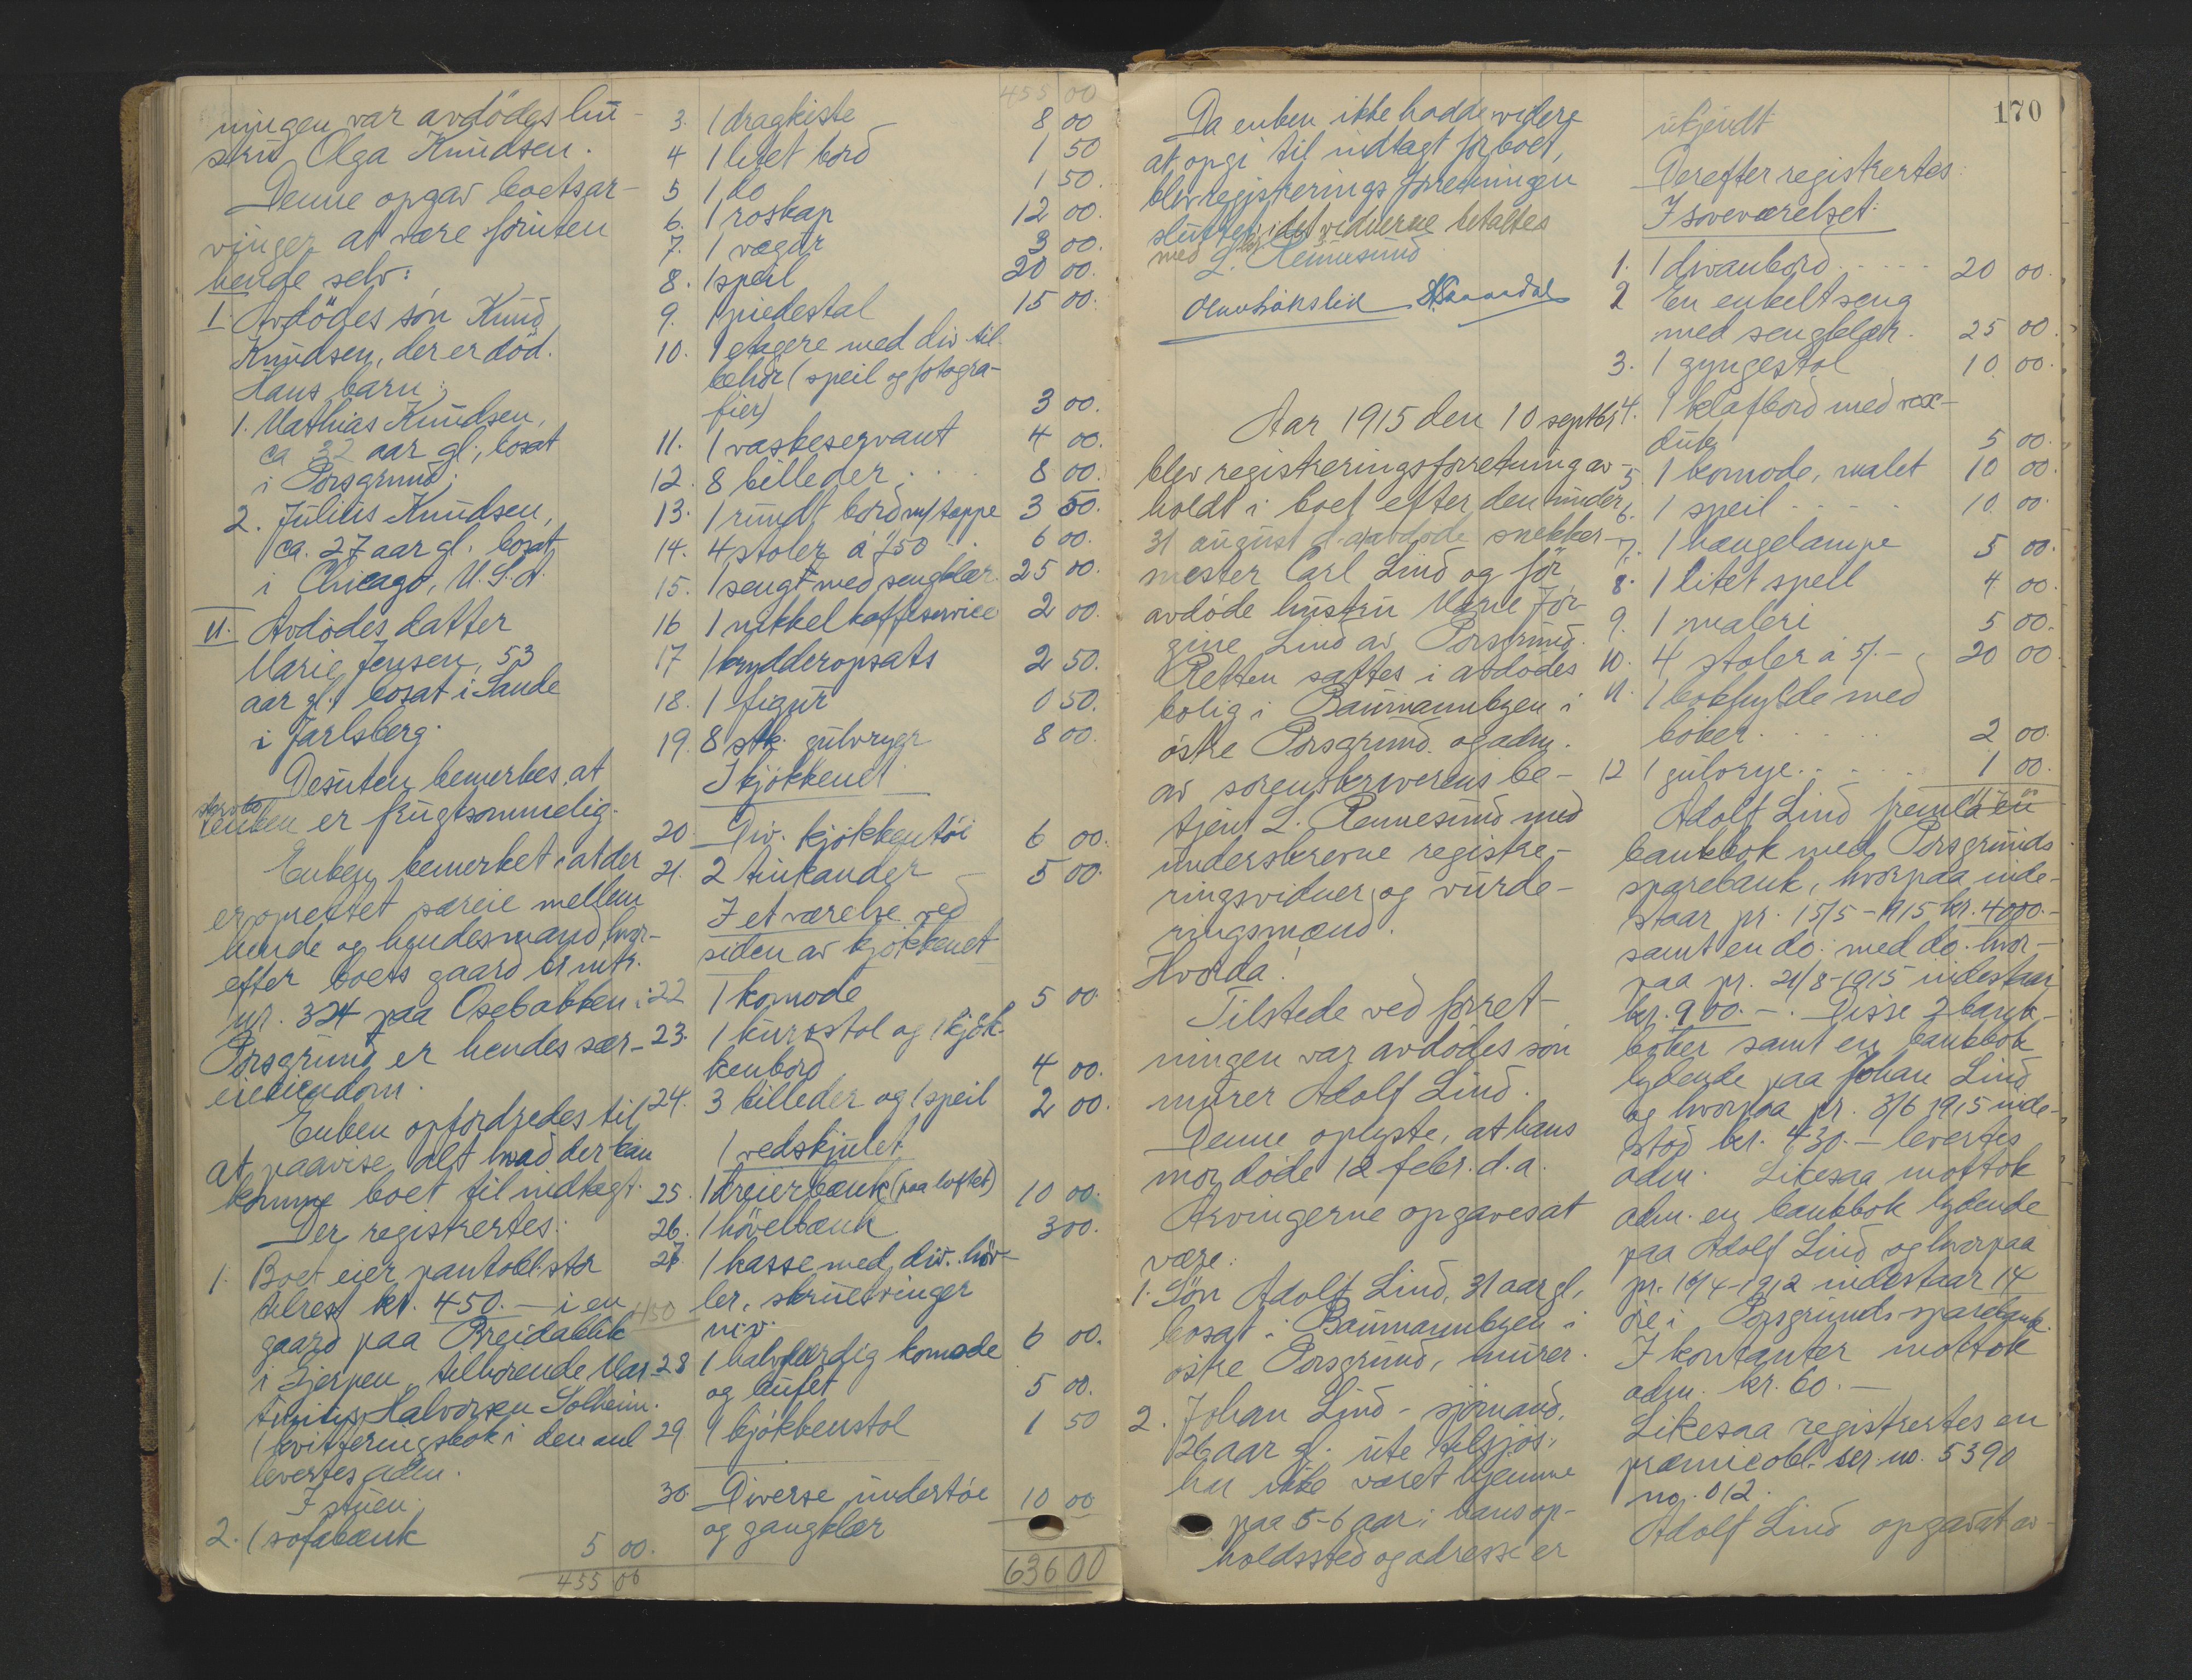 ningen var avdödes hu-
stru Olga Knudsen.
Denne opgav boetsar-
vinger at være foruten
hende selv:
I. Avdödes sön Knud
Knudsen, der er död.
Hans barn:
1. Mathias Knudsen,
ca 32 aar gl., bosat
i Porsgrund.
2. Julius Knudsen,
ca. 27 aar gl. bosat
i Chicago, U.S.A.
II. Avdödes datter
Marie Jensen, 53
aar gl. bosat i Sande
i Jarlsberg.
Desuten bemerkes, at
enken er frugtsommelig.
Enken bemerket, at der
er oprettet særeie mellem
hende og hendes mand hvor-
efter boets gaard br mtr.
nr. 324 paa Osebakken i
Porsgrund er hendes sær-
eieiendom.
Enken opfordredes til
at paavise alt hvad der kan
komme boet til indtægt.
Der registrertes:
1. Boet eier pantobl. stor
tilrest kr. 450.- i en 450
gaard paa Breidablik
i Gjerpen tilhörende Mar-
Halvorsen Solheim.
1 kvitteringsbok i den anl
levertes adm.
I stuen:
2. 1 sofabænk 5 00.
455 00
455 00
3. 1 dragkiste 8 00
4 1 litet bord 1 50
5 1 do 1 50.
6. 1 roskap 12 00.
7. 1 vægur 3 00.
8. 1 speil 20 00.
9. 1 piedestal 15 00.
10. 1 etagere med div. til
behör (speil og fotogra-
fier) 3 00.
11. 1 vaskeservant 4 00.
12. 8 billeder . . . 8 00.
13. 1 rundt bord m/ teppe 3 50.
14. 4 stoler á 1,50 . . 6 00.
15. 1 seng med sengklær. 25 00.
16 1 nikkel kaffeservice 2 00.
17 1 krydderopsats 2 50.
18. 1 figur 0 50.
19. 8 stk. gulvryer 8 00.
I kjökkenet
20. Div. kjökkentöi 6 00.
21. 2 tinkander 5 00.
I et værelse ved
siden av kjökkenet
22 1 komode 5 00.
23. 1 kurvstol og 1 kjök-
kenbord 4 00.
24. 3 billeder og 1 speil 2 00.
I vedskjulet
25. 1 dreierbænk (paa loftet) 10 00.
26. 1 hövelbænk 3 00.
27 1 kasse med div. höv-
ler, skruetvinger
m.v. 6 00.
28 1 halvfærdig komode
og bufet 5 00.
29 1 kjökkenstol 1 50
30. Diverse undertöi
og gangklær 10 00
636 00
Da enken ikke hadde videre
at opgi til indtægt for boet,
blev registreringsforretningen
sluttet, idet vidnerne betaltes
med
L. Rennesund
170
Aar 1915 den 10 septbr
blev registreringsforretning av-
holdt i boet efter den under
31 august d.a. avdöde snekker-
mester Carl Lind og för
avdöde hustru Maren Jör-
gine Lind av Porsgrund.
Retten sattes i avdödes
bolig i Baumannbyen i
östre Porsgrund og adm.
av sorenskriverens be-
tjent L. Rennesund med
underskrevne registre-
ringsvidner og vurde-
ringsmænd.
Hvorda!
Tilstede ved forret-
ningen var avdödes sön
murer Adolf Lind.
Denne oplyste, at hans
mor döde 12 febr. d.a.
Arvingerne opgaves at
være:
1. Sön Adolf Lind, 31 aar gl,
bosat i Baumannbyen i
östre Porsgrund, murer.
2. Johan Lind - sjömand,
26 aar gl. ute tilsjös,
har ikke været hjemme
paa 5-6 aar; hans op-
holdssted og adresse er
ukjendt
Derefter registrertes:
I soveværelset:
1. 1 divanbord . . . 20 00.
2 En enkelt seng
med sengklær. 25 00.
3. 1 gyngestol 10 00.
4. 1 klafbord med vox-
duk 5 00.
5. 1 komode, malet 10 00
6. 1 speil . . . . 10 00.
7. 1 hængelampe 5 00.
8. 1 litet speil 4 00
9. 1 maleri 5 00.
10. 4 stoler a 5/- 20 00
11. 1 bokhylde med
böker . . . . . 2 00.
12 1 gulvrye . . . 1 00.
Adolf Lind fremla en
bankbok med Porsgrunds
sparebank, hvorpaa inde-
staar pr. 15/5-1915 kr. 4000.-
samt en do. med do. hvor-
paa pr. 21/8-1915 indestaar
kr. 900.-. Disse 2 bank-
böker samt en bankbok
lydende paa Johan Lind
og hvorpaa pr. 3/6 1915 inde-
stod kr. 430.- levertes
adm. Likesaa mottok
adm. en bankbok lydende
paa Adolf Lind og hvorpaa
pr. 16/4-1912 indestaar 14
öre i Porsgrunds sparebank.
I kontanter mottok
adm. kr. 60.-
Likesaa registrertes en
præmieobl. ser. no. 5390
no. 012.
Adolf Lind opgav at av-